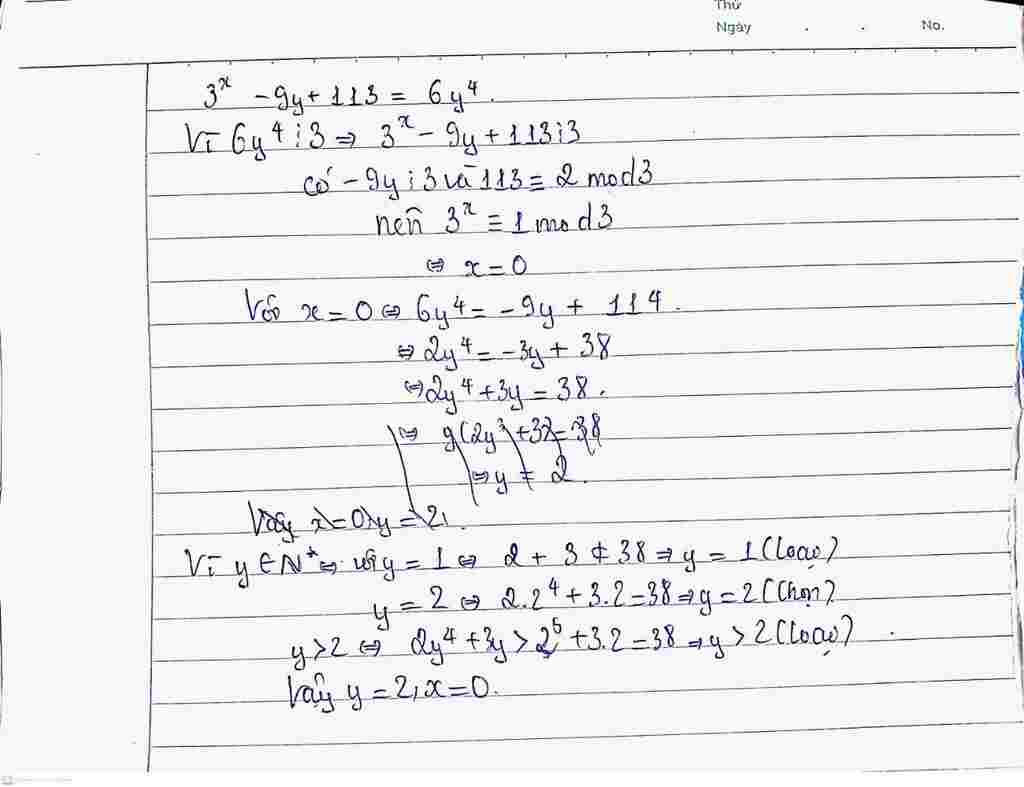 Thứ
Ngày . . No.
3^x - 9y + 113 = 6y^4.
Vì 6y^4 ⋮ 3 ⇒ 3^x - 9y + 113 ⋮ 3
có -9y ⋮ 3 và 113 ≡ 2 mod 3
nên 3^x ≡ 1 mod 3
⇔ x = 0
Với x = 0 ⇔ 6y^4 = -9y + 114.
⇔ 2y^4 = -3y + 38
⇔ 2y^4 + 3y = 38.
⇔ y(2y^3 + 3) = 38
⇔ y = 2.
Vậy x = 0, y = 2.
Vì y ∈ N* ⇔ với y = 1 ⇔ 2 + 3 ≠ 38 ⇒ y = 1 (loại)
y = 2 ⇔ 2.2^4 + 3.2 = 38 ⇒ y = 2 (Chọn)
y > 2 ⇔ 2y^4 + 3y > 2^5 + 3.2 = 38 ⇒ y > 2 (loại)
Vậy y = 2, x = 0.